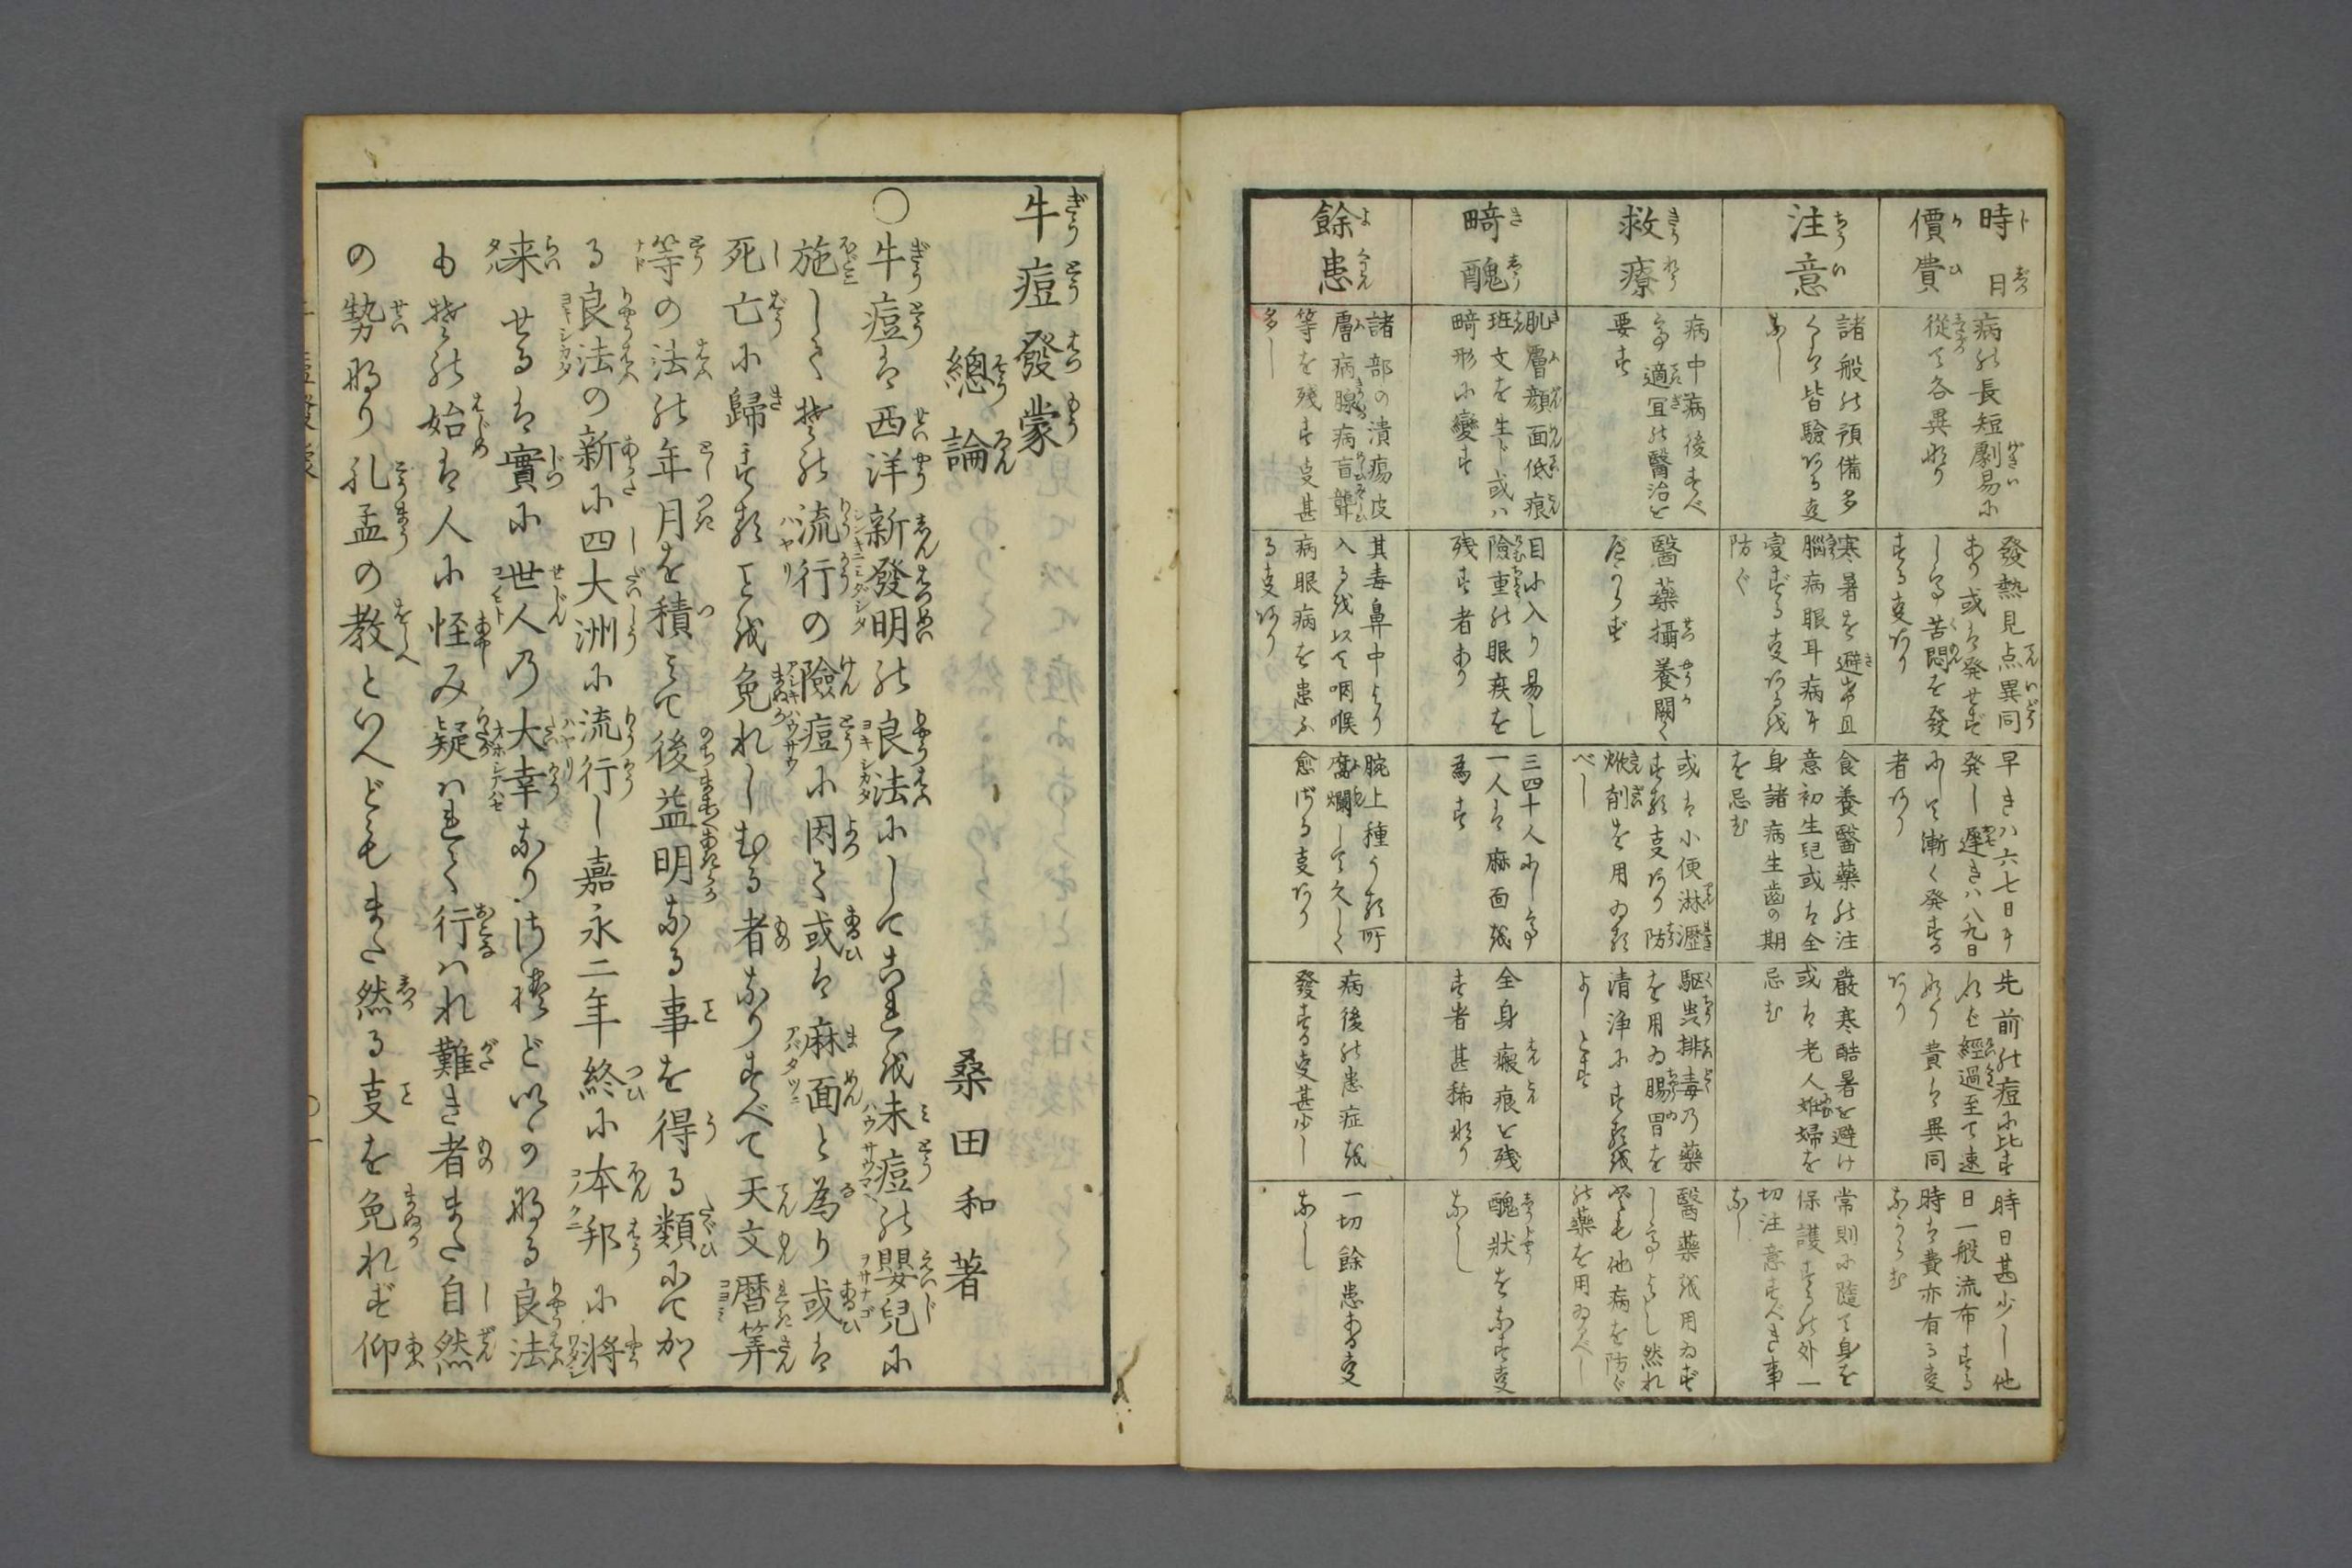 時日
價費
病の長短劇易に
從て各異なり
發熱見点異同
あり或は発せず
して苦悶を發
する支あり
早きハ六七日に
発し遅きハ八九日
にして漸く発する
者あり
先前の痘に比す
れは經過至て速
なり費は異同
あり
時日甚少し他
日一般流布する
時は費亦有る支
なからむ
注意
諸般の預備多
くは皆驗ある支
なし
寒暑を避常且
腦病眼耳病に
変ずる支あるを
防ぐ
食養醫藥の注
意初生兒或は全
身諸病生齒の期
を忌む
嚴寒酷暑を避け
或は老人妊婦を
忌む
常則に隨て身を
保護するの外一
切注意すべき事
なし
救療
病中病後すべ
て適宜の醫治を
要す
醫藥攝養闕く
べからず
或は小便淋瀝
する支あり防
焮剤を用ゐる
べし
駆蛊排毒乃藥
を用ゐ腸胃を
清淨にするを
よしとす
醫藥を用ゐず
してよろし然れ
ども他病を防ぐ
の藥を用ゐべし
畸醜
肌膚顔面低痕
班文を生ト或ハ
畸形に變す
目に入り易し
險重の眼疾を
残す者あり
三四十人にして
一人は麻面を
為す
全身瘢痕を残
す者甚稀なり
醜狀をなす支
なし
餘患
諸部の潰瘍皮
膚病腺病盲聾
等を残す支甚
多し
其毒鼻中より
入るを以て咽喉
病眼病を患ふ
る支あり
腕上種うる所
腐爛して久しく
愈ざる支あり
病後の患症を
發する支甚少し
一切餘患ある支
なし
牛痘發蒙
總論
桑田和著
○牛痘は西洋新發明の良法にしてこれを未痘の嬰兒に
施してその流行の險痘に因て或は麻面と為り或は
死亡に歸するを免れしむる者なりすべて天文暦筭
等の法の年月を積みて後益明なる事を得る類にてか
る良法の新に四大洲に流行し嘉永二年終に本邦に將
来せるは實に世人乃大幸なりけれどいかなる良法
もその始は人に怪み疑ハれて行ハれ難き者また自然
の勢なり孔孟の教といへどもまた然る支を免れず仰